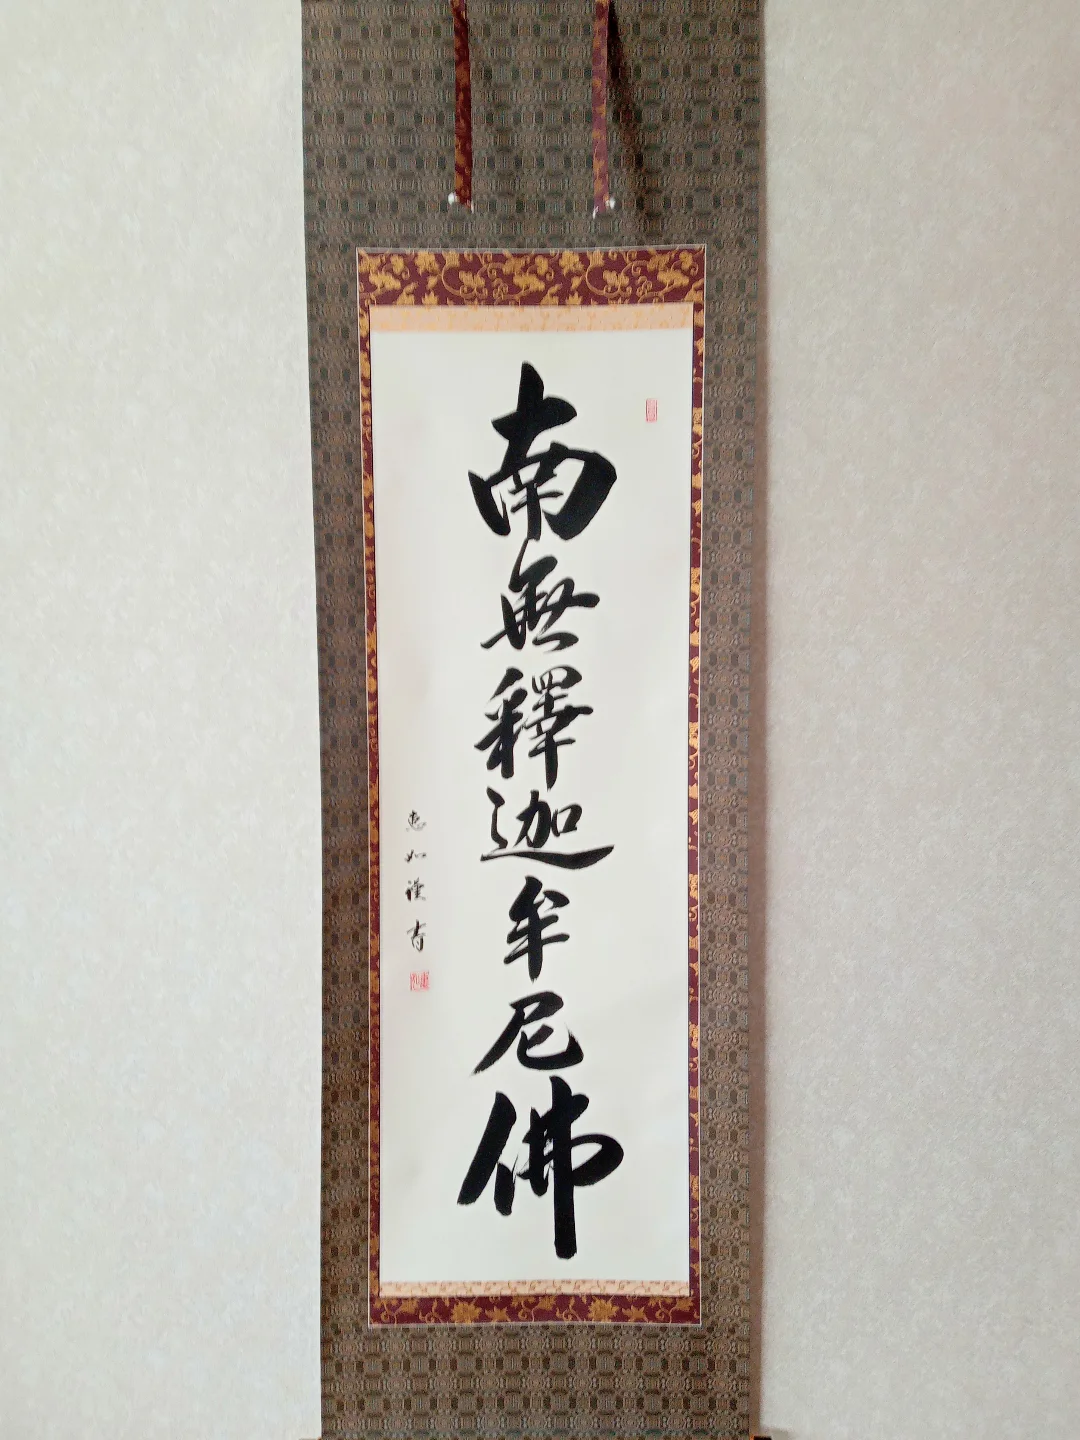 南無釋迦牟尼佛
惠如謹書